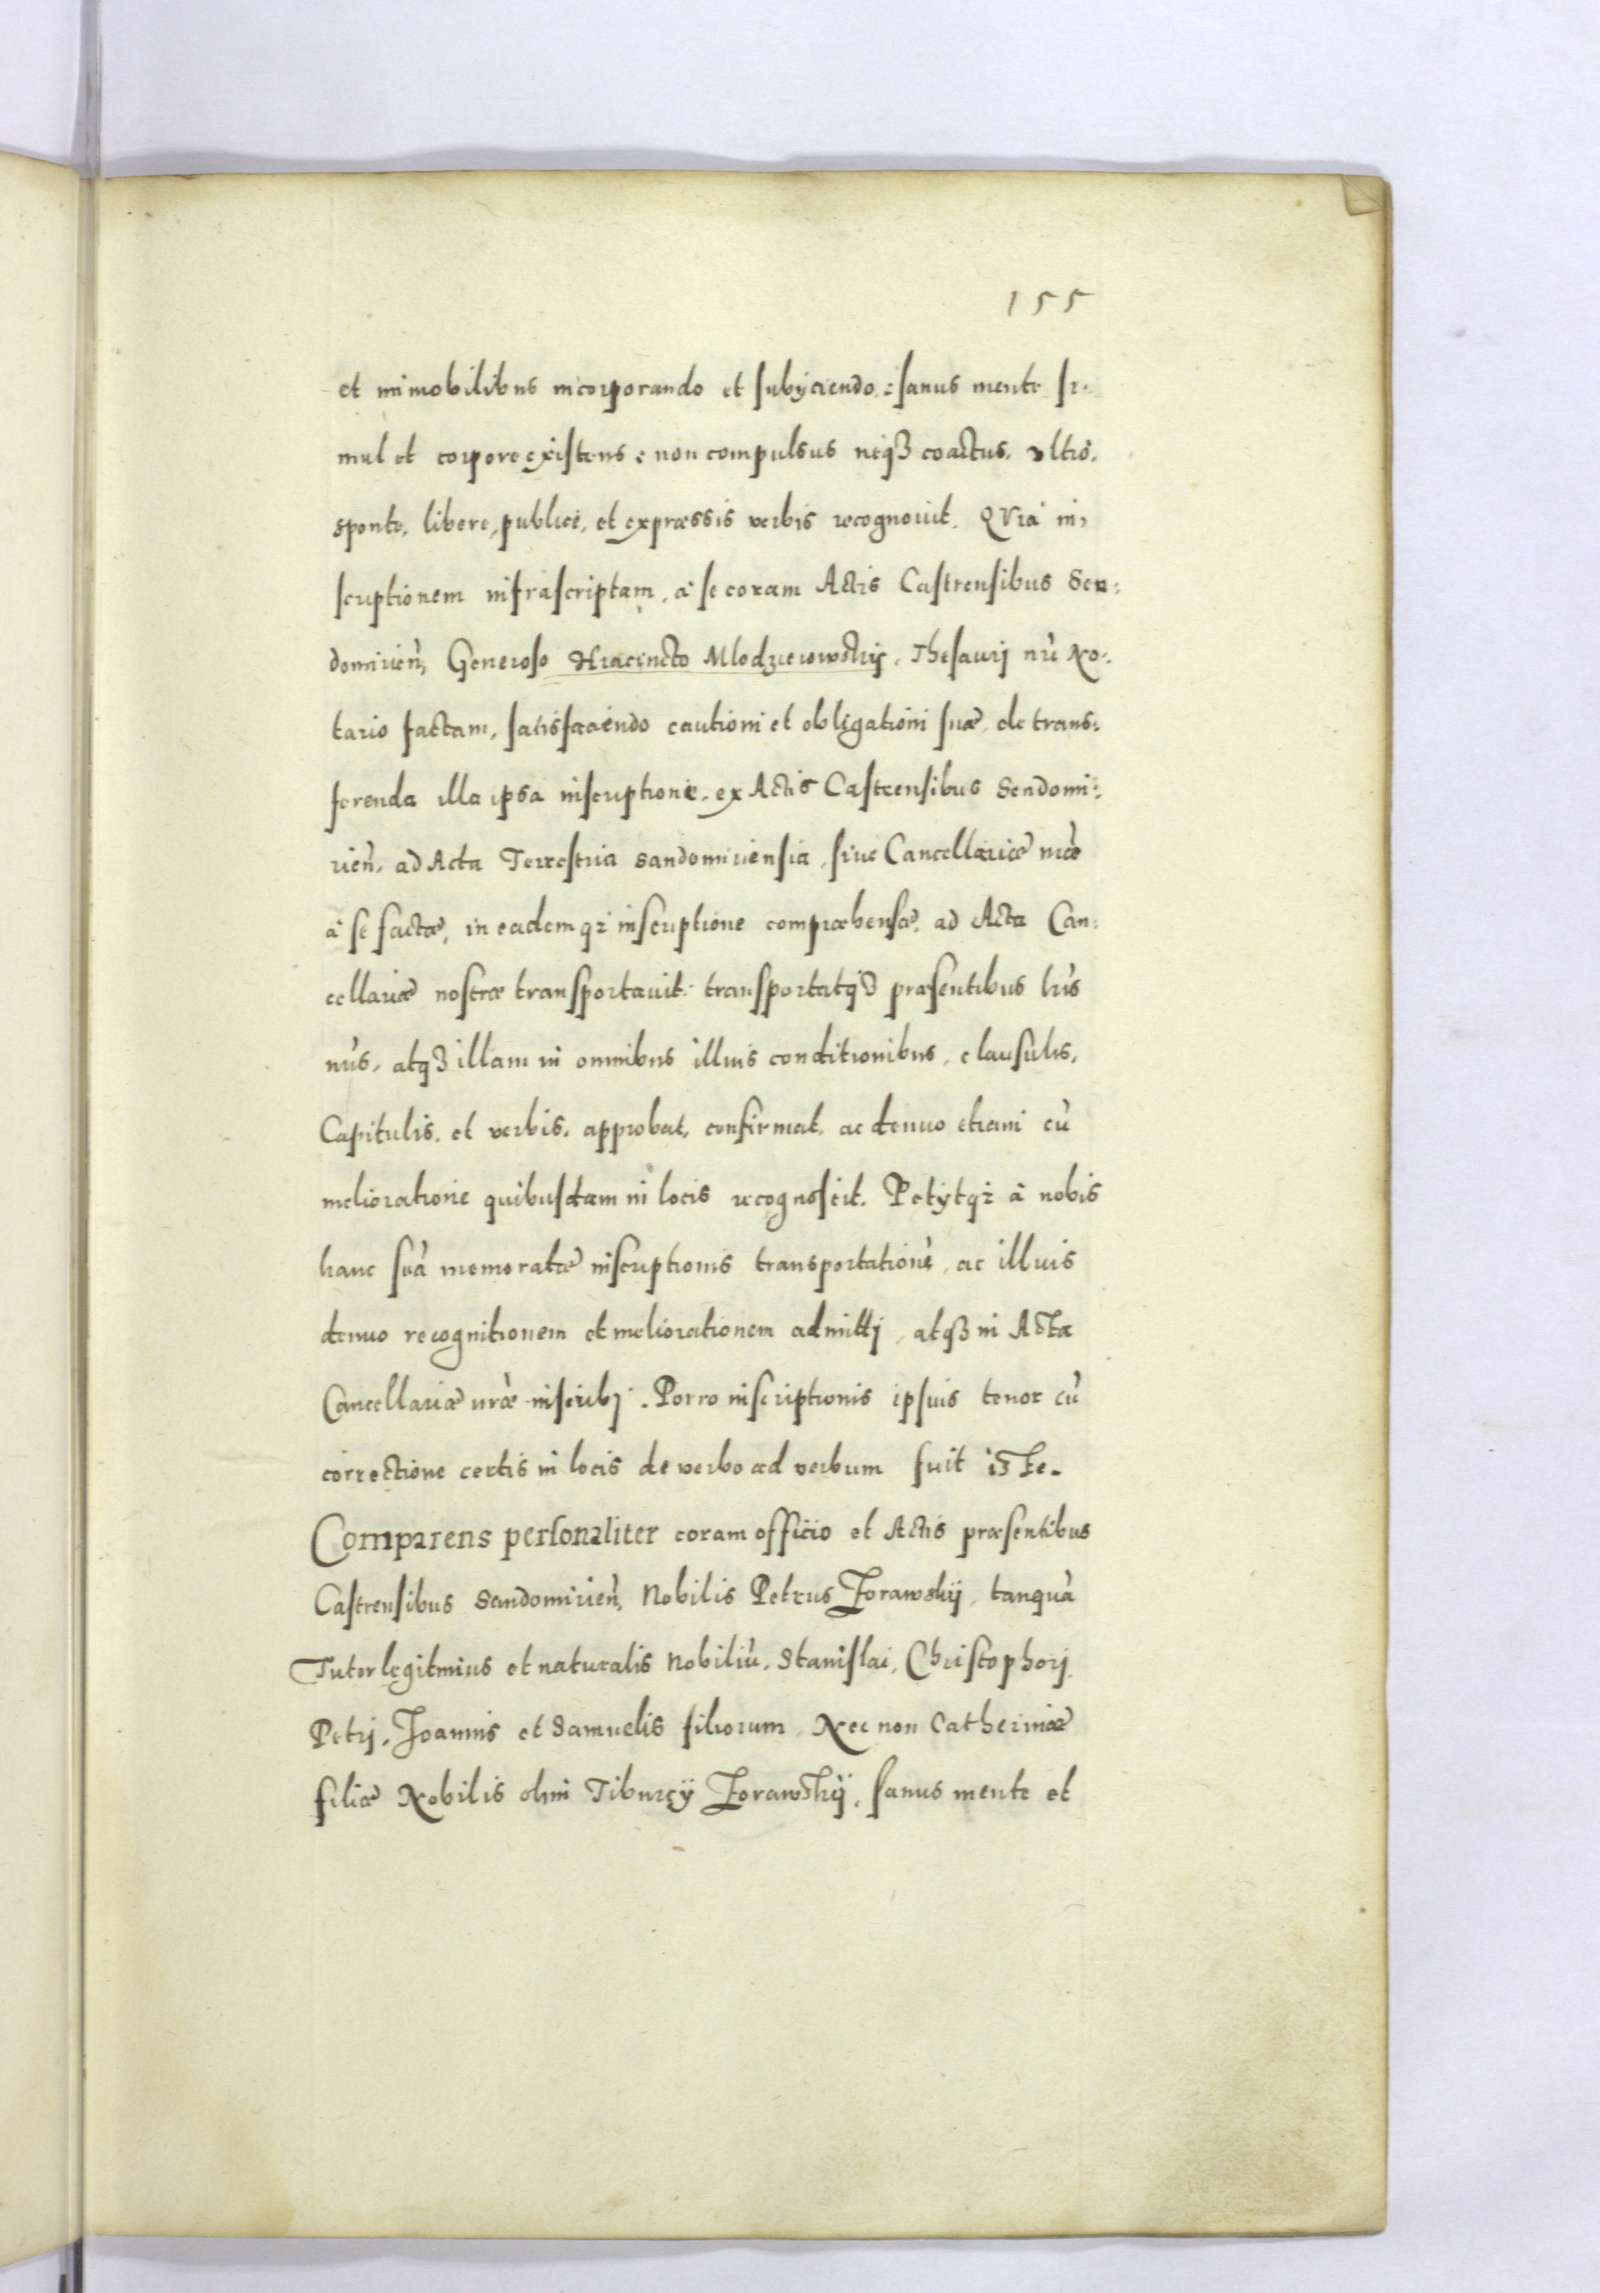 155
et immobilibus incorporando et subÿciendo: sanus mente si-
mul et corpore existens: non compulsus neqꝫ coactus, vltro,
sponte, libere, publicè, et expræssis verbis recognovit. QVia in-
scriptionem infrascriptam, à se coram Actis Castrensibus Sen-
domirien̄, Generoso Hiacincto Mlodzieiowskij, Thesaurj nr̄i No-
tario factam, satisfaciendo cautioni et obligationi suæ, de trans-
ferenda illa ipsa inscriptione, ex Actis Castrensibus Sendomi-
rien̄, ad Acta Terrestria Sandomiriensia, siue Cancellariæ nr̄æ
à se factæ, in eademqꝫ inscriptione compræhensæ, ad Acta Can-
cellariæ nostræ transportauit: transportatqꝫ præsentibus lr̄is
nr̄is, atqꝫ illam in omnibus illius conditionibus, clausulis,
Capitulis, et verbis, approbat, confirmat, ac denuo etiam cū
melioratione quibusdam in locis recognoscit. Petÿtqꝫ à nobis
hanc suā memoratæ inscriptionis transportationē, ac illius
denuo recognitionem et meliorationem admittj, atqꝫ in Acta
Cancellariæ nr̄æ inscribj. Porro inscriptionis ipsius tenor cū
correctione certis in locis de verbo ad verbum fuit iste.
Comparens personaliter coram officio et Actis præsentibus
Castrensibus Sandomirien̄, Nobilis Petrus Zorawskij, tanquā
Tutor legitimus et naturalis Nobiliū, Stanislai, Christophorj
Petrj, Joannis et Samuelis filiorum, Nec non Catherinæ
filiæ Nobilis olim Tiburcÿ Zorawskij, sanus mente et